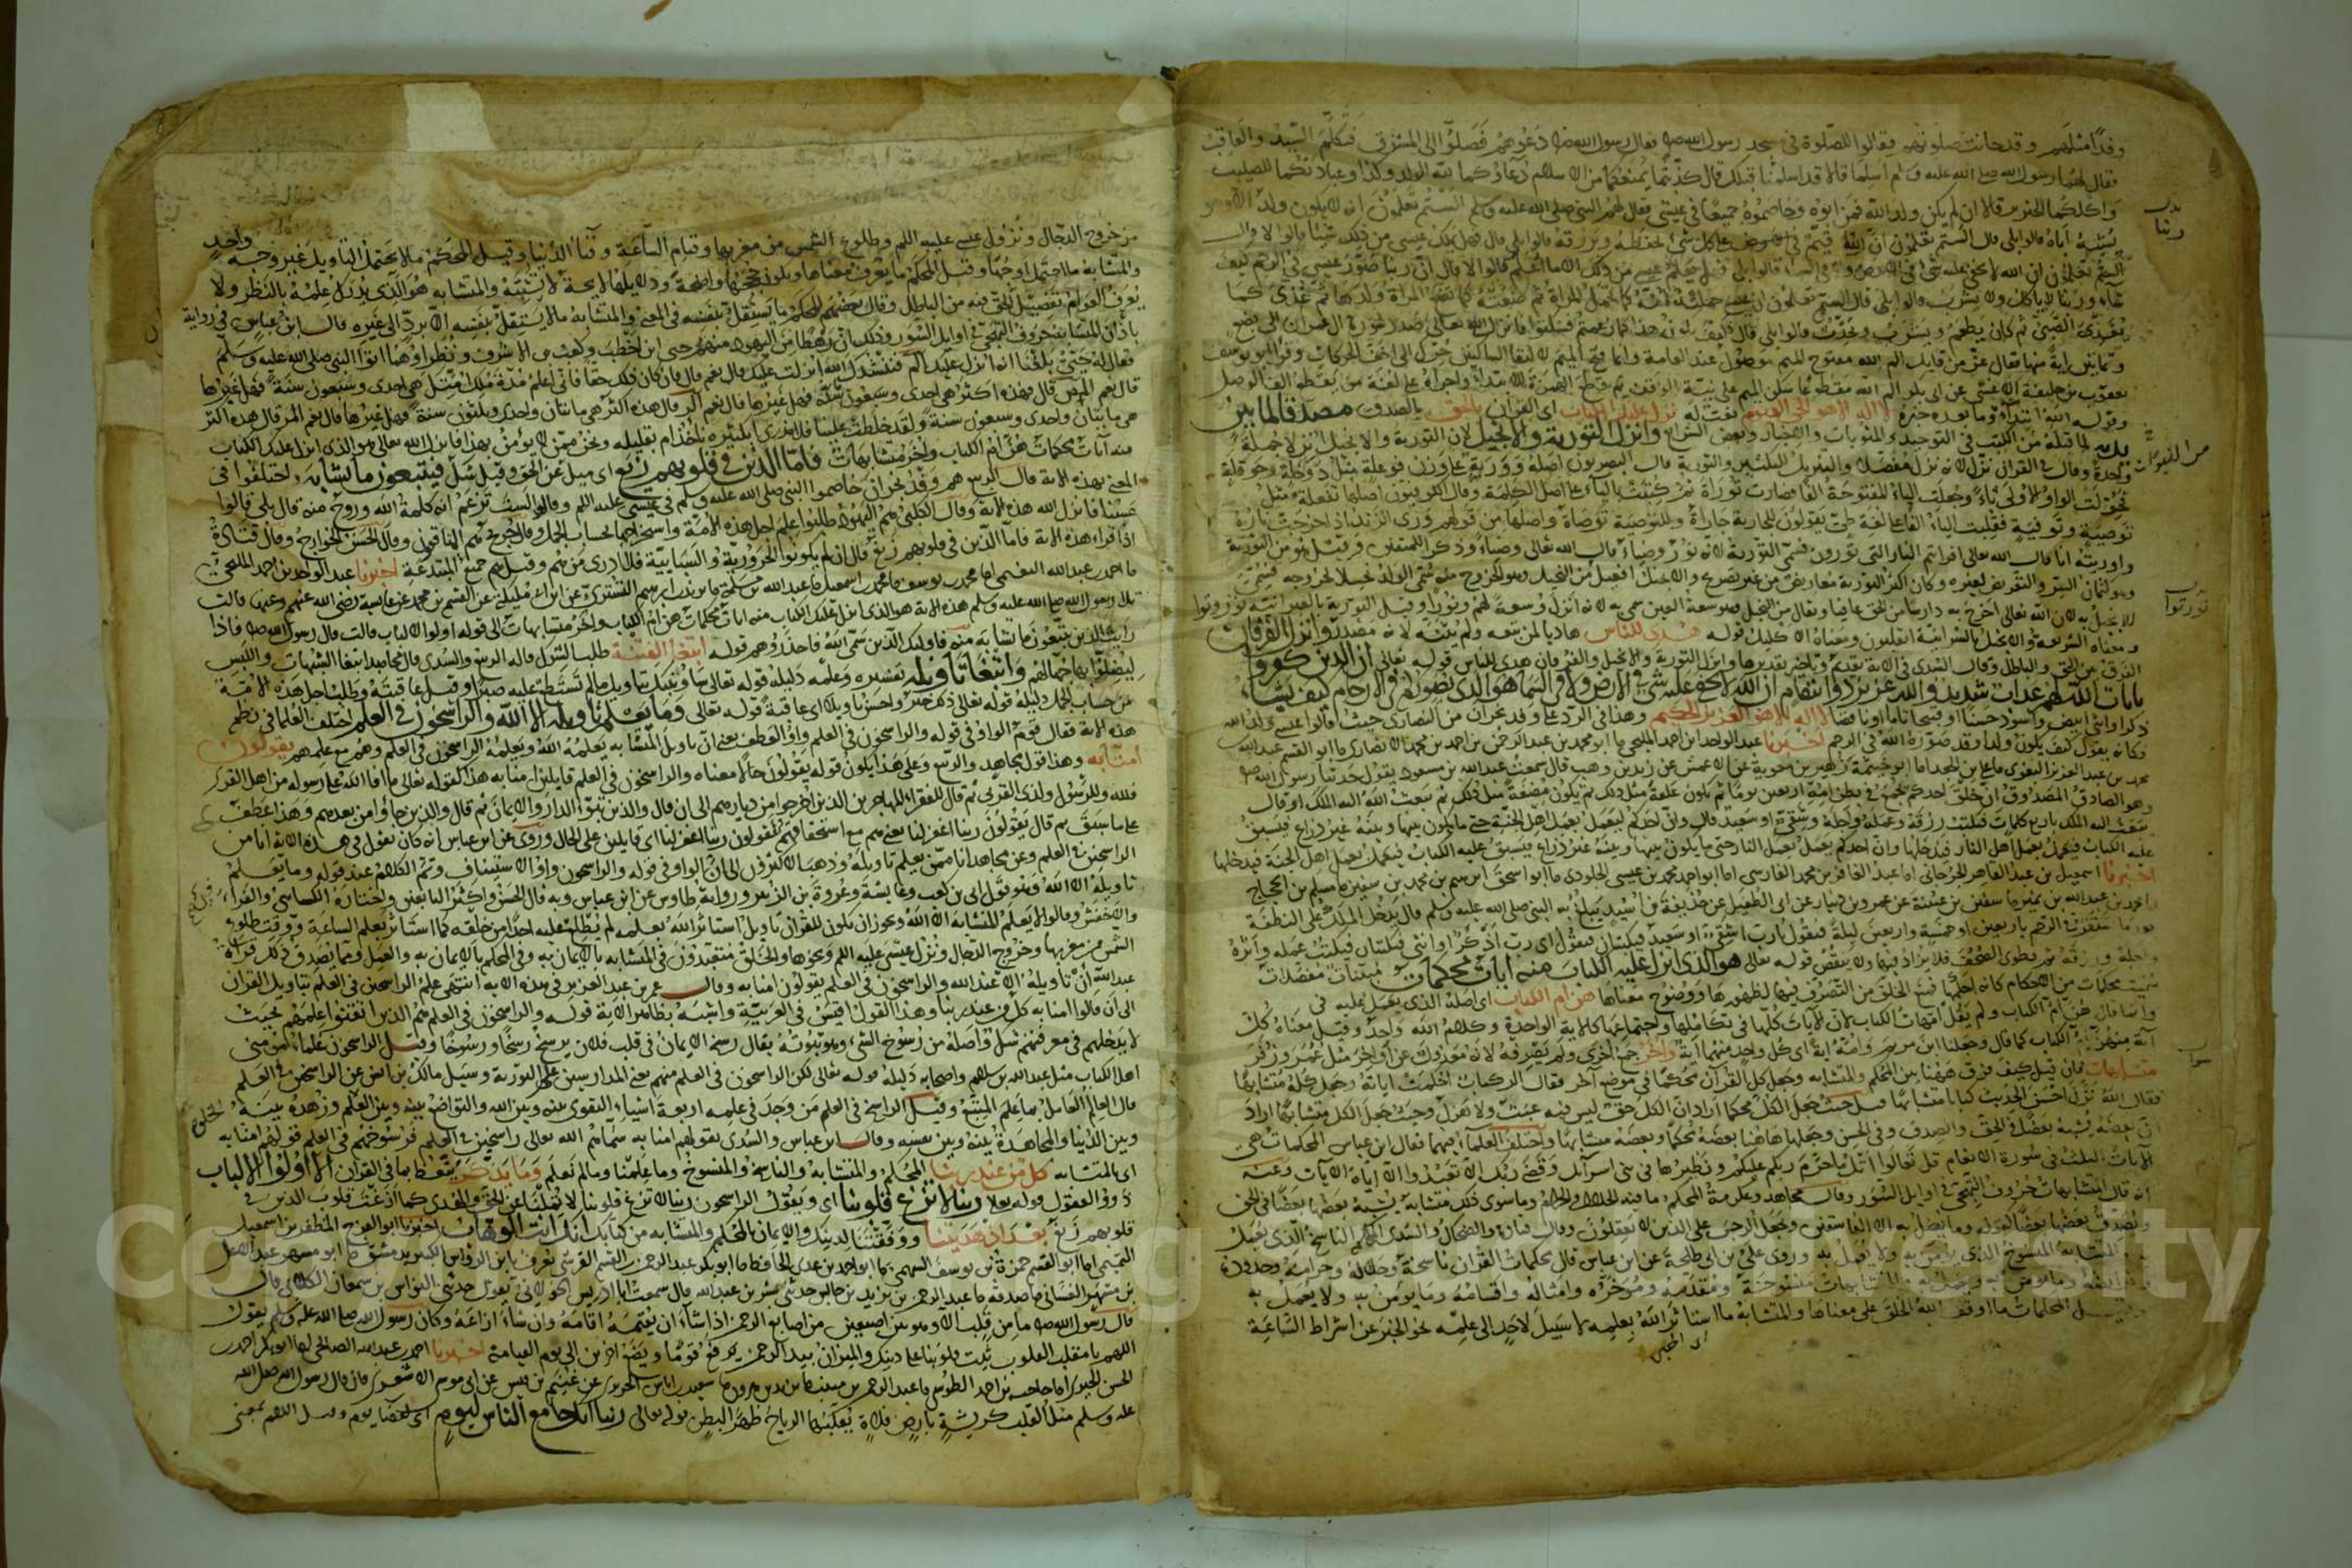 وفدا مثلهم وقد حانت صلوتهم فقاموا للصلوة في مسجد رسول الله صلم فقال رسول الله صلم دعوهم فصلوا الى المشرق فتكلم السيد والعاقب
فقال لهما رسول الله صلى الله عليه وسلم اسلما قالا قد اسلمنا قبلك قال كذبتما يمنعكما من الاسلام دعاؤكما لله الولد وكذا وعبادتكما للصليب
واكلكما الخنزير قالا ان لم يكن ولد الله فمن ابوه وخاصموه جميعا في عيسى فقال لهم النبي صلى الله عليه وسلم الستم تعلمون انه لا يكون ولد الا وهو
يشبه اباه قالوا بلى قال الستم تعلمون ان ربنا قيم على كل شئ يحفظه ويرزقه قالوا بلى قال فهل يملك عيسى من ذلك شيئا قالوا لا قال
الستم تعلمون ان الله لا يخفى عليه شئ في الارض ولا في السماء قالوا بلى قال فهل يعلم عيسى من ذلك الا ما علم قالوا لا قال ان ربنا صور عيسى في الرحم كيف
شاء وربنا لا ياكل ولا يشرب قالوا بلى قال الستم تعلمون ان عيسى حملته امه كما تحمل المراة ثم وضعته كما تضع المراة ولدها ثم غذي كما
يغذى الصبي ثم كان يطعم ويشرب ويحدث قالوا بلى قال فكيف يكون هذا كما زعمتم فسكتوا فانزل الله تعالى صدر سورة ال عمران الى بضع
وثمانين اية منها فقال عز من قايل الم الله مفتوح الميم موصول عند العامة وانما فتح الميم لالتقاء الساكنين حرك الى اخف الحركات وقرا ابو يوسف
يعقوب بن خليفة الاعشى عن ابي بكر الم الله مقطوعا سكن الميم على نية الوقف ثم قطع الهمزة للابتداء واجراه على لغة من يقطع الف الوصل
وقوله الله ابتداء وما بعده خبره لا اله الا هو الحي القيوم نعت له نزل عليك الكتاب اى القران بالحق بالصدق مصدقا لما بين
يديه لما قبله من الكتب في التوحيد والنبوات والاخبار وبعض الشرائع وانزل التورية والانجيل لان التورية والانجيل انزلا جملة
واحدة وقال في القران نزل لانه نزل مفصلا والتنزيل للتكثير والتورية قال البصريون اصله وورية على وزن فوعلة مثل دوحلة وحوقلة
فحولت الواو الاولى تاء وجعلت الياء المفتوحة الفا فصارت توراة ثم كتبت بالياء على اصل الكلمة وقال الكوفيون اصلها تفعلة مثل
توصية وتوفية فقلبت الياء الفا على لغة طي يقولون للجارية جاراة وللتوصية توصاة واصلها من قولهم ورى الزند اذا خرجت ناره
واوريته انا قال الله تعالى افرايتم النار التي تورون فسمي التورية لانه نور وضياء قال الله تعالى وضياء وذكرا للمتقين وقيل هو من التورية
وهو كتمان السر والتعريض لغيره وكان اكثر التورية معاريض من غير تصريح والانجيل افعيل من النجل وهو الخروج ومنه سمى الولد نجلا لخروجه فسمي
الانجيل به لان الله تعالى اخرج به دارسا من الحق عافيا ويقال من النجل وهو سعة العين سمي به لانه انزل وسعة لهم ونورا وقيل التورية بالعبرانية توروتوا
ومعناه الشريعة والانجيل بالسريانية انقليون ومعناه الاكليل قوله هدى للناس هاديا لمن تبعه ولم يثنه لانه مصدر وانزل الفرقان
الفرق بين الحق والباطل وقال السدي في الاية تقديم وتاخير تقديرها وانزل التورية والانجيل والفرقان هدى للناس قوله تعالى ان الذين كفروا
بايات الله لهم عذاب شديد والله عزيز ذو انتقام ان الله لا يخفى عليه شئ في الارض ولا في السماء هو الذي يصوركم في الارحام كيف يشاء
ذكرا او انثى ابيض واسود حسنا او قبيحا تاما او ناقصا لا اله الا هو العزيز الحكيم وهذا في الرد على وفد نجران من النصارى حيث قالوا عيسى ولد الله
فكانه يقول كيف يكون ولدا وقد صوره الله في الرحم اخبرنا عبد الواحد ابن احمد المليحي ما ابو محمد بن عبد الرحمن بن احمد بن محمد الانصارى ما ابو القسم عبد الله
محمد بن عبد العزيز البغوى ما علي بن الجعد اما ابو خيثمة زهير بن معوية عن الاعمش عن زيد بن وهب قال سمعت عبد الله بن مسعود يقول حدثنا رسول الله صلم
وهو الصادق المصدوق ان خلق احدكم يجمع في بطن امه اربعين يوما ثم يكون علقة مثل ذلك ثم يكون مضغة مثل ذلك ثم يبعث الله اليه الملك او قال
يبعث اليه الملك باربع كلمات فيكتب رزقه وعمله واجله وشقي او سعيد قال وان احدكم ليعمل بعمل اهل الجنة حتى ما يكون بينها وبينه غير ذراع فيسبق
عليه الكتاب فيعمل بعمل اهل النار فيدخلها وان احدكم يعمل بعمل النار حتى ما يكون بينها وبينه غير ذراع فيسبق عليه الكتاب فيعمل بعمل اهل الجنة فيدخلها
اخبرنا اسمعيل بن عبد القاهر الجرجاني اما عبد الغافر بن محمد الفارسي اما ابو احمد محمد بن عيسى الجلودى ما ابو اسحق ابرهيم بن محمد بن سفين ما مسلم بن الحجاج
ما محمد بن عبد الله بن نمير ما سفين بن عيينة عن عمرو بن دينار عن ابى الطفيل عن حذيفة بن اسيد يبلغ به النبي صلى الله عليه وسلم قال يدخل الملك على النطفة
بعد ما تستقر في الرحم باربعين او خمسة واربعين ليلة فيقول يا رب اشقي او سعيد فيكتبان فيقول اى رب اذكر او انثى فيكتبان فيكتب عمله واثره
واجله ورزقه ثم يطوى الصحف فلا يزاد فيها ولا ينقص قوله تعالى هو الذي انزل عليك الكتاب منه ايات محكمات مبينات مفصلات
سميت محكمات من الاحكام كانه احكمها فمنع الخلق من التصرف فيها لظهورها ووضوح معناها هن ام الكتاب اى اصله الذي يعمل عليه في
وانما قال هن ام الكتاب ولم يقل امهات الكتاب لان الايات كلها في تكاملها واجتماعها كالاية الواحدة وكلام الله واحد وقيل معناه كل
اية منهن ام الكتاب كما قال وجعلنا ابن مريم وامه اية اى كل واحد منهما اية واخر جمع اخرى ولم يصرفه لانه معدول عن اواخر مثل عمر وزفر
متشابهات فان قيل كيف فرق ههنا بين المحكم والمتشابه وجعل كل القرآن محكما في موضع آخر فقال الر كتاب احكمت اياته وجعل كله متشابها
فقال الله نزل احسن الحديث كتابا متشابها قيل حيث جعل الكل محكما اراد ان الكل حق ليس فيه عبث ولا هزل وحيث جعل الكل متشابها اراد
ان بعضه يشبه بعضا في الحق والصدق وفي الحسن وجعلها هاهنا بعضه محكما وبعضه متشابها واختلف العلماء فيهما فقال ابن عباس المحكمات هي
الايات الثلث في سورة الانعام قل تعالوا اتل ما حرم ربكم عليكم ونظيرها في بني اسرآئل وقضى ربك الا تعبدوا الا اياه الايات وعنه
انه قال المتشابهات حروف التهجي في اوايل السور وقال مجاهد وعكرمة المحكم ما فيه الحلال والحرام وما سوى ذلك متشابه يشبه بعضها بعضا في الحق
ويصدق بعضها بعضا كقوله وما يضل به الا الفاسقين ويجعل الرجس على الذين لا يعقلون وقال قتادة والضحاك والسدى المحكم الناسخ الذى يعمل
به والمتشابه المنسوخ الذي يؤمن به ولا يعمل به وروى علي بن ابي طلحة عن ابن عباس قال محكمات القران ناسخه وحلاله وحرامه وحدوده
وفرائضه وما يؤمن به ويعمل به والمتشابهات منسوخة ومقدمه ومؤخره وامثاله واقسامه وما يؤمن به ولا يعمل به
وقيل المحكمات ما اوقف الله الخلق على معناها والمتشابه ما استاثر الله بعلمه لا سبيل لاحد الى علمه نحو الخبر عن اشراط الساعة
من خروج الدجال ونزول عيسى عليه اللم وطلوع الشمس من مغربها وقيام الساعة وفنا الدنيا وقيل المحكم ما لا يحتمل التاويل غير وجه واحد
والمتشابه ما احتمل اوجها وقيل المحكم ما يعرف معناها ويكون حججها واضحة ودلايلها لايحة لا يشتبه والمتشابه هو الذى يدرك علمه بالنظر ولا
يعرف العوام تفصيل الحق فيه من الباطل وقال بعضهم المحكم ما يستقل بنفسه في المعنى والمتشابه ما لا يستقل بنفسه الا برد الى غيره قال ابن عباس في رواية
باذان المتشابه حروف التهجي في اوايل السور وذلك ان رهطا من اليهود منهم حيى ابن اخطب وكعب بن الاشرف ونظراؤهما اتوا النبي صلى الله عليه وسلم
فقال له حيي بلغنا انه انزل عليك الم فننشدك الله انزلت عليك قال نعم قال فان كان ذلك حقا فاني اعلم مدة ملك امتك هي احدى وسبعون سنة فهل غيرها
قال نعم المص قال فهذه اكثر هي احدى وستون ومائة فهل غيرها قال نعم الر قال هذه اكثر هي مائتان واحدى وثلثون سنة فهل غيرها قال نعم المر قال هذه اكثر
هي مائتان واحدى وسبعون سنة ولقد خلطت علينا فلا ندرى ابكثيره ناخذ ام بقليله ونحن ممن لا يؤمن بهذا فانزل الله تعالى هو الذى انزل عليك الكتاب
منه آيات محكمات هن ام الكتاب واخر متشابهات فاما الذين في قلوبهم زيغ اى ميل عن الحق وقيل شك فيتبعون ما تشابه واختلفوا في
المعنى بهذه الاية قال الربيع هم وفد نجران خاصموا النبي صلى الله عليه وسلم في عيسى عليه اللم وقالوا الست تزعم انه كلمة الله وروح منه قال بلى قالوا
حسبنا فانزل الله هذه الاية وقال الكلبي هم اليهود طلبوا علم اجل هذه الامة واستخراجها بحساب الجمل وقال ابن جريج هم المنافقون وقال الحسن الخوارج وقال قتادة
اذا قراء هذه الاية فاما الذين في قلوبهم زيغ قال ان لم يكونوا الحرورية والسبايية فلا ادرى من هم وقيل هم جميع المبتدعة اخبرنا عبد الواحد بن احمد المليحي
ما احمد بن عبد الله النعيمي اما محمد بن يوسف ما محمد بن اسمعيل ما عبد الله بن مسلمة ما يزيد بن ابرهيم التسترى عن ابن ابى مليكة عن القسم بن محمد عن عايشة رضي الله عنهم وعنها قالت
تلا رسول الله صلى الله عليه وسلم هذه الاية هو الذى انزل عليك الكتاب منه ايات محكمات هن ام الكتاب واخر متشابهات الى قوله اولوا الالباب قالت قال رسول الله صلم فاذا
رايت الذين يتبعون ما تشابه منه فاولئك الذين سمى الله فاحذروهم قوله ابتغا الفتنة طلب الشرك قاله الربيع والسدى قال مجاهد ابتغا الشبهات واللبس
ليضلوا بها جهالهم وابتغا تاويله تفسيره وعلمه دليله قوله تعالى سانبئك بتاويل ما لم تستطع عليه صبرا وقيل عاقبته وطلب اجل هذه الامة
من حساب الجمل دليله قوله تعالى ذلك خير واحسن تاويلا اى عاقبة قوله تعالى وما يعلم تاويله الا الله والراسخون في العلم اختلف العلما في نظم
هذه الاية فقال قوم الواو في قوله والراسخون في العلم واو العطف يعنى ان تاويل المتشابه يعلمه الله ويعلمه الراسخون في العلم وهم مع علمهم يقولون
امنا به وهذا قول مجاهد والربيع وعلى هذا يكون قوله يقولون حالا معناه والراسخون في العلم قايلين امنا به هذا كقوله تعالى ما افا الله على رسوله من اهل القرى
فلله وللرسول ولذى القربى ثم قال للفقراء المهاجرين الذين اخرجوا من ديارهم الى ان قال والذين تبوؤ الدار والايمان ثم قال والذين جاؤا من بعدهم وهذا عطف
على ما سبق ثم قال يقولون ربنا اغفر لنا يعنى هم مع استحقاقهم الفئ يقولون ربنا اغفر لنا اى قايلين على الحال وروى عن ابن عباس انه كان يقول في هذه الاية انا من
الراسخين في العلم وعن مجاهد انا ممن يعلم تاويله وذهب الاكثرون الى ان الواو في قوله والراسخون واو الاستيناف وتم الكلام عند قوله وما يعلم
تاويله الا الله وهو قول ابى بن كعب وعايشة وعروة بن الزبير ورواية طاوس عن ابن عباس وبه قال الحسن واكثر التابعين واختاره الكسائي والفراء
والاخفش وقالوا لا يعلم المتشابه الا الله وبجوز ان يكون للقران تاويل استاثر الله بعلمه لم يطلع عليه احدا من خلقه كما استاثر بعلم الساعة ووقت طلوع
الشمس من مغربها وخروج الدجال ونزول عيسى عليه اللم ونحوها والخلق متعبدون في المتشابه بالايمان به وفي المحكم بالايمان به والعمل ومما يصدق ذلك قراة
عبد الله ان تاويله الا عند الله والراسخون في العلم يقولون امنا به وقال عمر بن عبد العزيز في هذه الاية انتهى علم الراسخين في العلم بتاويل القران
الى ان قالوا امنا به كل من عند ربنا وهذا القول اقيس في العربية واشبه بظاهر الاية قوله والراسخون في العلم هم الذين اتقنوا علمهم بحيث
لا يتداخلهم في معرفتهم شك واصله من رسوخ الشئ وهو ثبوته يقال رسخ الايمان في قلب فلان يرسخ رسخا ورسوخا وقيل الراسخون علماء مؤمني
اهل الكتاب مثل عبد الله بن سلام واصحابه دليله قوله تعالى لكن الراسخون في العلم منهم يعنى المدارسين علم التورية وسيل مالك بن انس عن الراسخين في العلم
قال العالم العامل بما علم المتبع وقيل الراسخ في العلم من وجد في علمه اربعة اشياء التقوى بينه وبين الله والتواضع بينه وبين الخلق وزهده بينه
وبين الدنيا والمجاهدة بينه وبين نفسه وقال ابن عباس والسدى بقولهم امنا به سماهم الله تعالى راسخين في العلم فرسوخهم في العلم قولهم امنا به
اى بالمتشابه كل من عند ربنا المحكم والمتشابه والناسخ والمنسوخ وما علمنا وما لم نعلم وما يذكر يتعظ بما في القران الا اولوا الالباب
ذووا العقول قوله تعالى ربنا لا تزغ قلوبنا اى ويقول الراسخون ربنا لا تزغ قلوبنا لا تملنا عن الحق والهدى كما ازغت قلوب الذين في
قلوبهم زيغ بعد اذ هديتنا ووفقتنا لدينك والايمان بالمحكم والمتشابه من كتابك انك انت الوهاب اخبرنا ابو الفرج المظفر بن اسمعيل
التميمى اما ابو القسم حمزة بن يوسف السهمى ما ابو احمد بن عدى الحافظ ما ابو بكر عبد الرحمن بن القسم القرشى يعرف بابن الرواس الكبير بدمشق ما ابو مسهر عبد الاعلى
بن مسهر الغسانى ما صدقة ما عبد الرحمن بن يزيد بن جابر حدثني بشر بن عبد الله قال سمعت ابا ادريس الخولانى يقول حدثنى النواس بن سمعان الكلابي قال
قال رسول الله صلم ما من قلب الا وهو بين اصبعين من اصابع الرحمن اذا شاء ان يقيمه اقامه وان شاء ازاغه وكان رسول الله صلى الله عليه وسلم يقول
اللهم يا مقلب القلوب ثبت قلوبنا على دينك والميزان بيد الرحمن يرفع قوما ويضع اخرين الى يوم القيامة اخبرنا احمد بن عبد الله الصالحى اما ابو بكر احمد بن
الحسن الحيرى اما حاجب بن احمد الطوسى ما عبد الرحمن بن منيب ما يزيد بن هرون ما سعيد بن اياس الجريرى عن غنيم بن قيس عن ابى موسى الاشعرى قال قال رسول الله صلى الله
عليه وسلم مثل القلب كريشة بارض فلاة يقلبها الرياح ظهر البطن قوله تعالى ربنا انك جامع الناس ليوم اى لقضا يوم وقيل اللام بمعنى